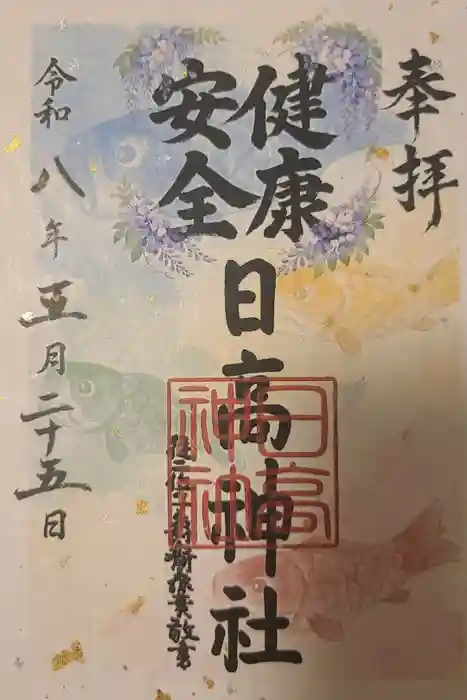 奉拝
健康
安全
日高神社
日高
神社
令和八年五月二十五日